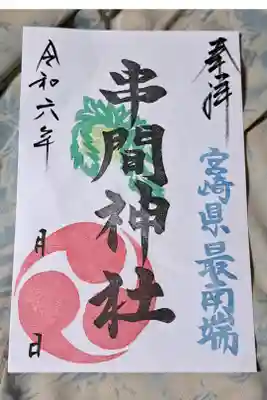 奉拝
宮崎県最南端
串間神社
令和六年 月 日